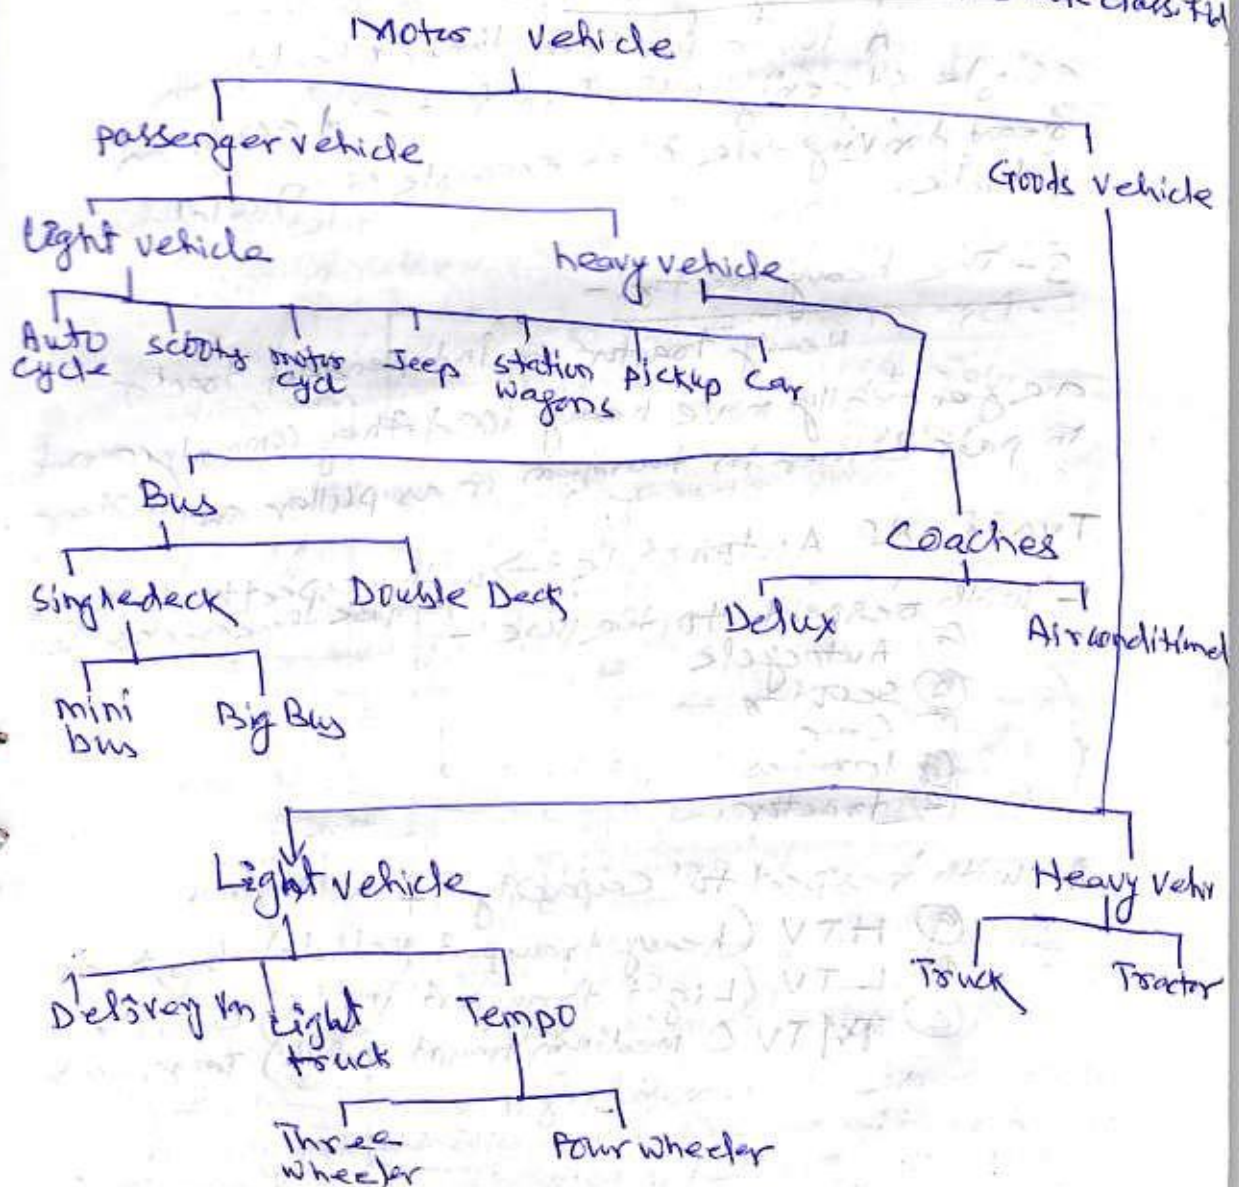 Motor vehicle
passenger vehicle
Goods vehicle
Light vehicle
heavy vehicle
Auto
cycle
scooty
motor
cycl
Jeep
station
wagons
pickup
Car
Bus
Coaches
Singledeck
Double Deck
Delux
Airconditined
mini
bus
Big Bus
Light vehicle
Heavy Vehi
Delivery Vn
Light
truck
Tempo
Truck
Tractor
Three
wheeler
Four wheeler